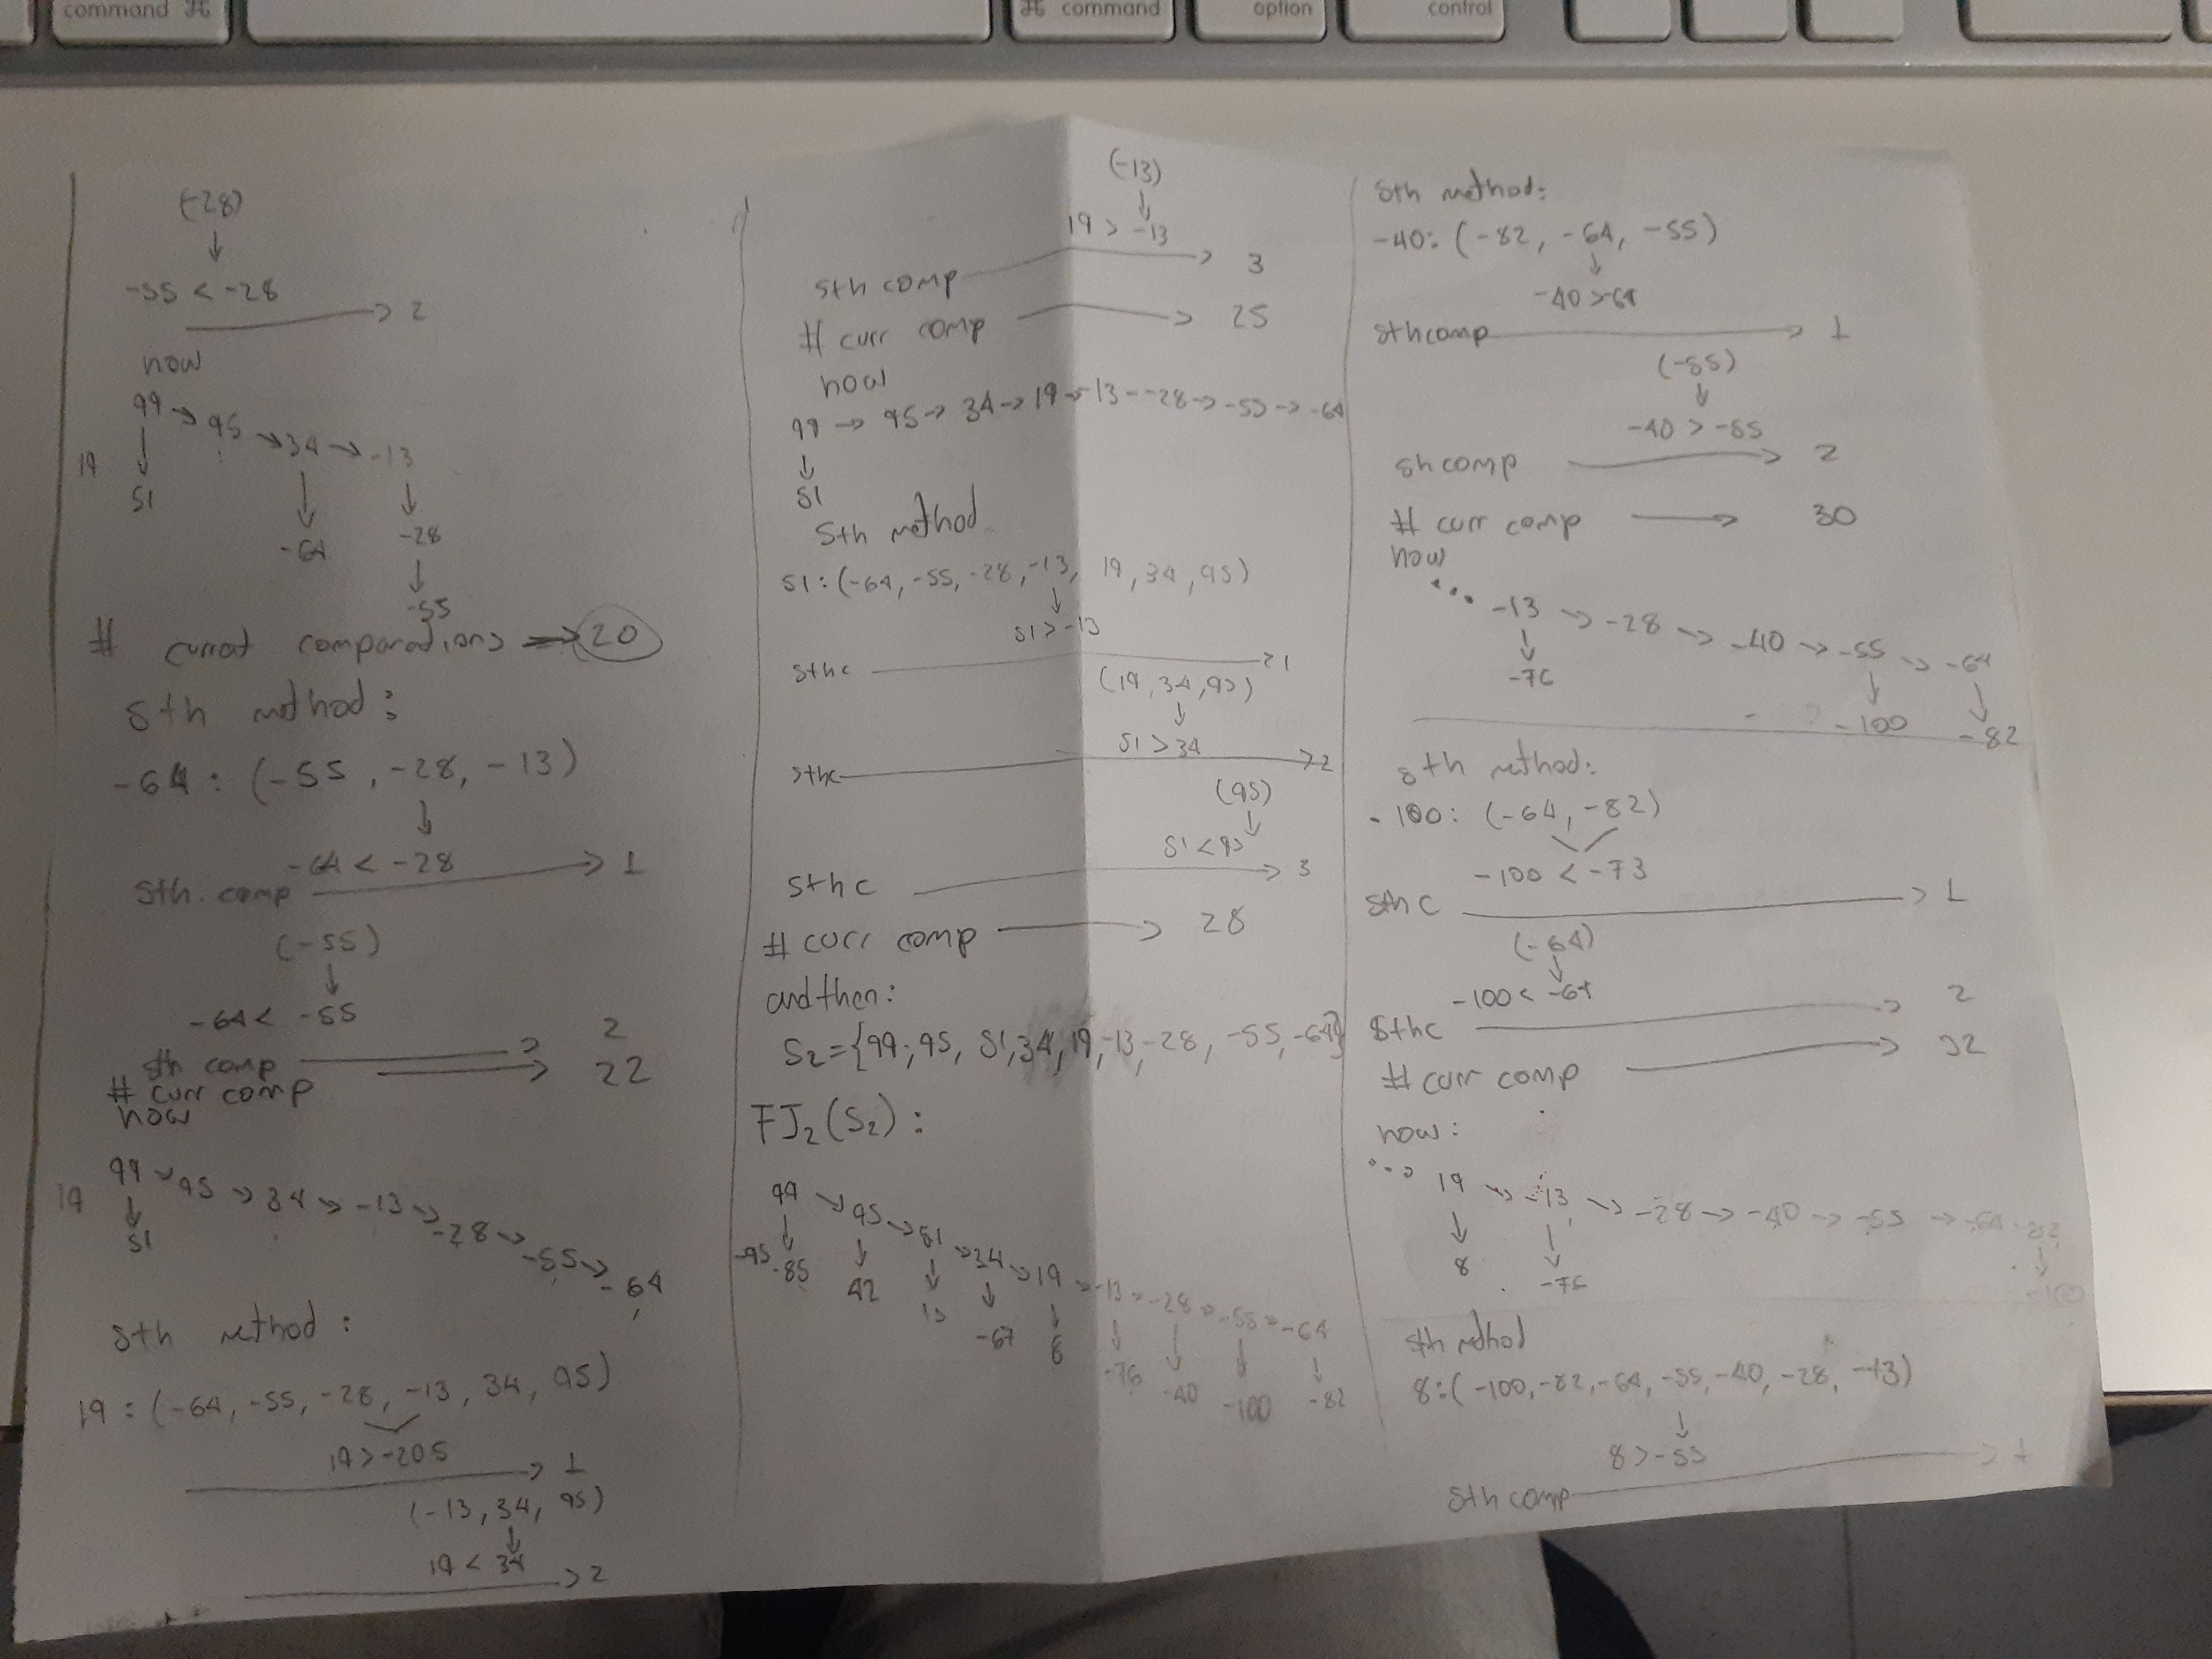 command ⌘
⌘ command
option
control
(-28)
↓
-55 < -28
→ 2
now
99 → 95 → 34 → -13
19 ↓ ↓ ↓
51 -64 -28
↓
-55
# currat comparations → 20
5th method:
-64: (-55, -28, -13)
↓
-64 < -28
5th. comp → 1
(-55)
↓
-64 < -55
5th comp → 2
# curr comp → 22
now
19 99 → 95 → 34 → -13 → -28 → -55 → -64
↓
51
5th method:
19: (-64, -55, -28, -13, 34, 95)
19 > -20.5
→ 1
(-13, 34, 95)
↓
19 < 34
→ 2
(-13)
↓
19 > -13
5th comp → 3
# curr comp → 25
now
99 → 95 → 34 → 19 → -13 - -28 → -55 → -64
↓
51
5th method
51: (-64, -55, -28, -13, 19, 34, 95)
↓
51 > -13
5thc → 1
(19, 34, 95)
↓
51 > 34
5thc → 2
(95)
↓
51 < 95
5thc → 3
# curr comp → 28
and then:
S2 = {99, 95, 51, 34, 19, -13, -28, -55, -64}
FJ2(S2):
99 → 95 → 51 → 34 → 19 → -13 → -28 → -55 → -64
↓ ↓ ↓ ↓ ↓ ↓ ↓ ↓ ↓
-95 -85 42 -67 8 -76 -40 -100 -82
5th method:
-40: (-82, -64, -55)
↓
-40 > -64
5th comp → 1
(-55)
↓
-40 > -55
5h comp → 2
# curr comp → 30
now
... -13 → -28 → -40 → -55 → -64
↓ ↓ ↓
-76 -100 -82
5th method:
-100: (-64, -82)
-100 < -73
5thc → 1
(-64)
↓
-100 < -64
5thc → 2
# curr comp → 32
now:
... 19 → -13 → -28 → -40 → -55 → -64 -82
↓ ↓ ↓
8 -76 -100
5th method
8: (-100, -82, -64, -55, -40, -28, -13)
↓
8 > -55
5th comp → 1